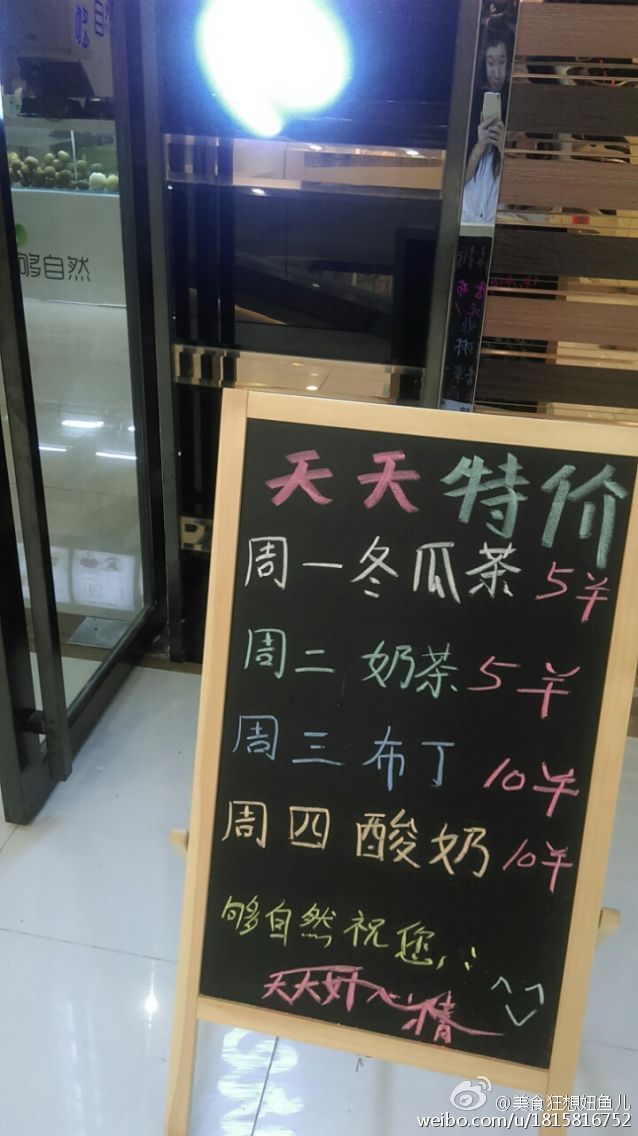 够自然
天天特价
周一冬瓜茶 5羊
周二 奶茶 5羊
周三 布丁 10羊
周四 酸奶 10羊
够自然祝您
天天好心情
@美食狂想妞鱼儿
weibo.com/u/1815816752